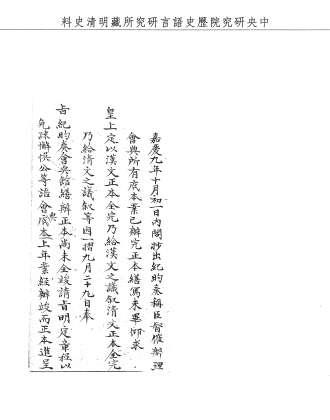 中央研究院歷史語言研究所藏明清史料
嘉慶九年十月初一日內閣抄出紀昀奏稱臣督催辦理
會典所有底本業已辦完正本繕寫未畢仰求
皇上定以漢文正本全完乃給漢文之議敘清文正本全完
乃給清文之議敘等因一摺九月二十九日奉
旨紀昀奏會典館繕辦正本尚未全竣請旨明定章程以
免疎懈供公等語會典底本上年業經辦竣而正本進呈